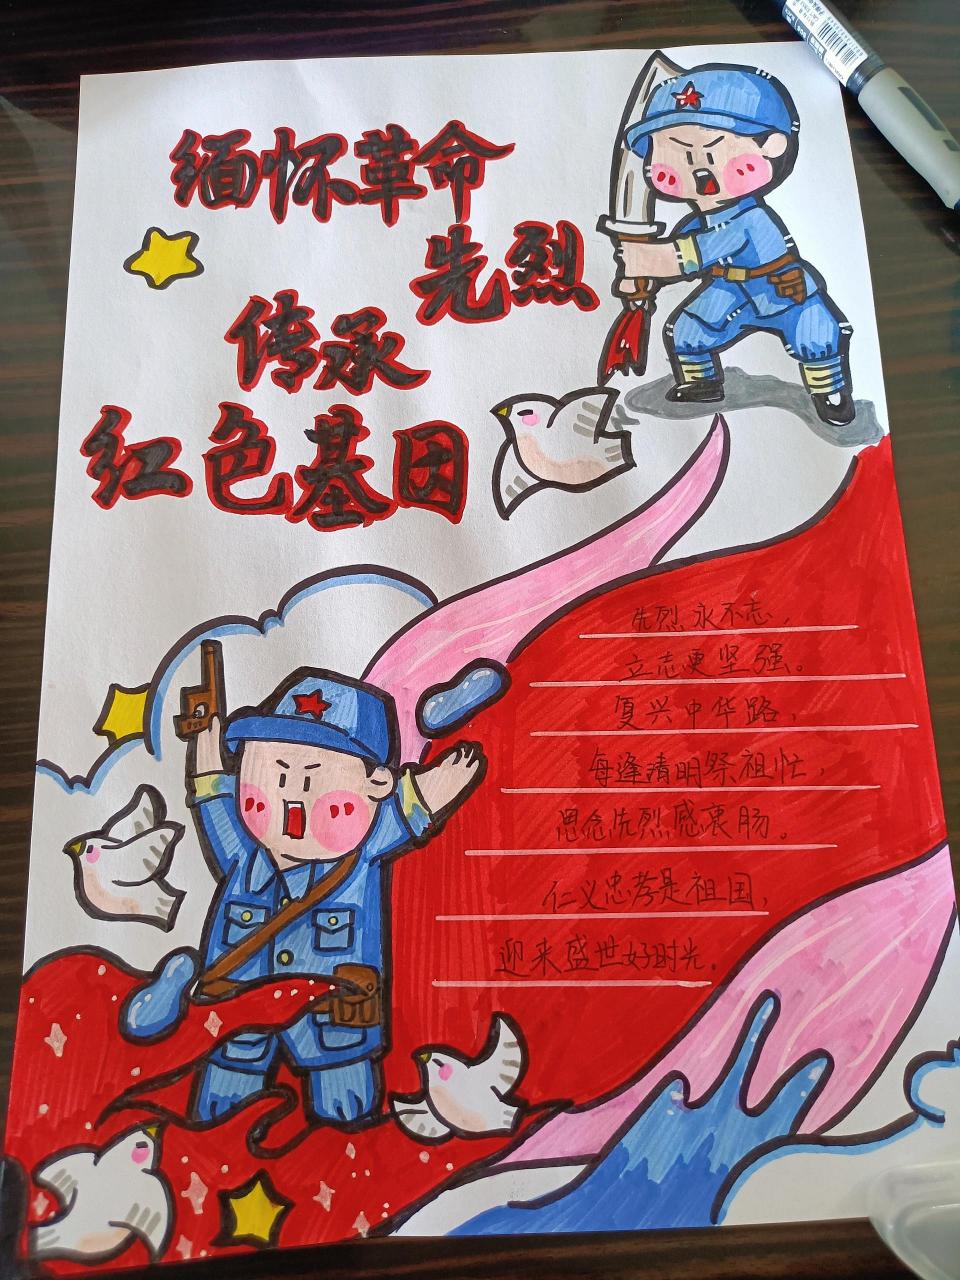 缅怀革命
先烈
传承
红色基因
先烈永不志，
立志更坚强。
复兴中华路，
每逢清明祭祖忙，
思念先烈感衷肠。
仁义忠孝是祖国，
迎来盛世好时光。